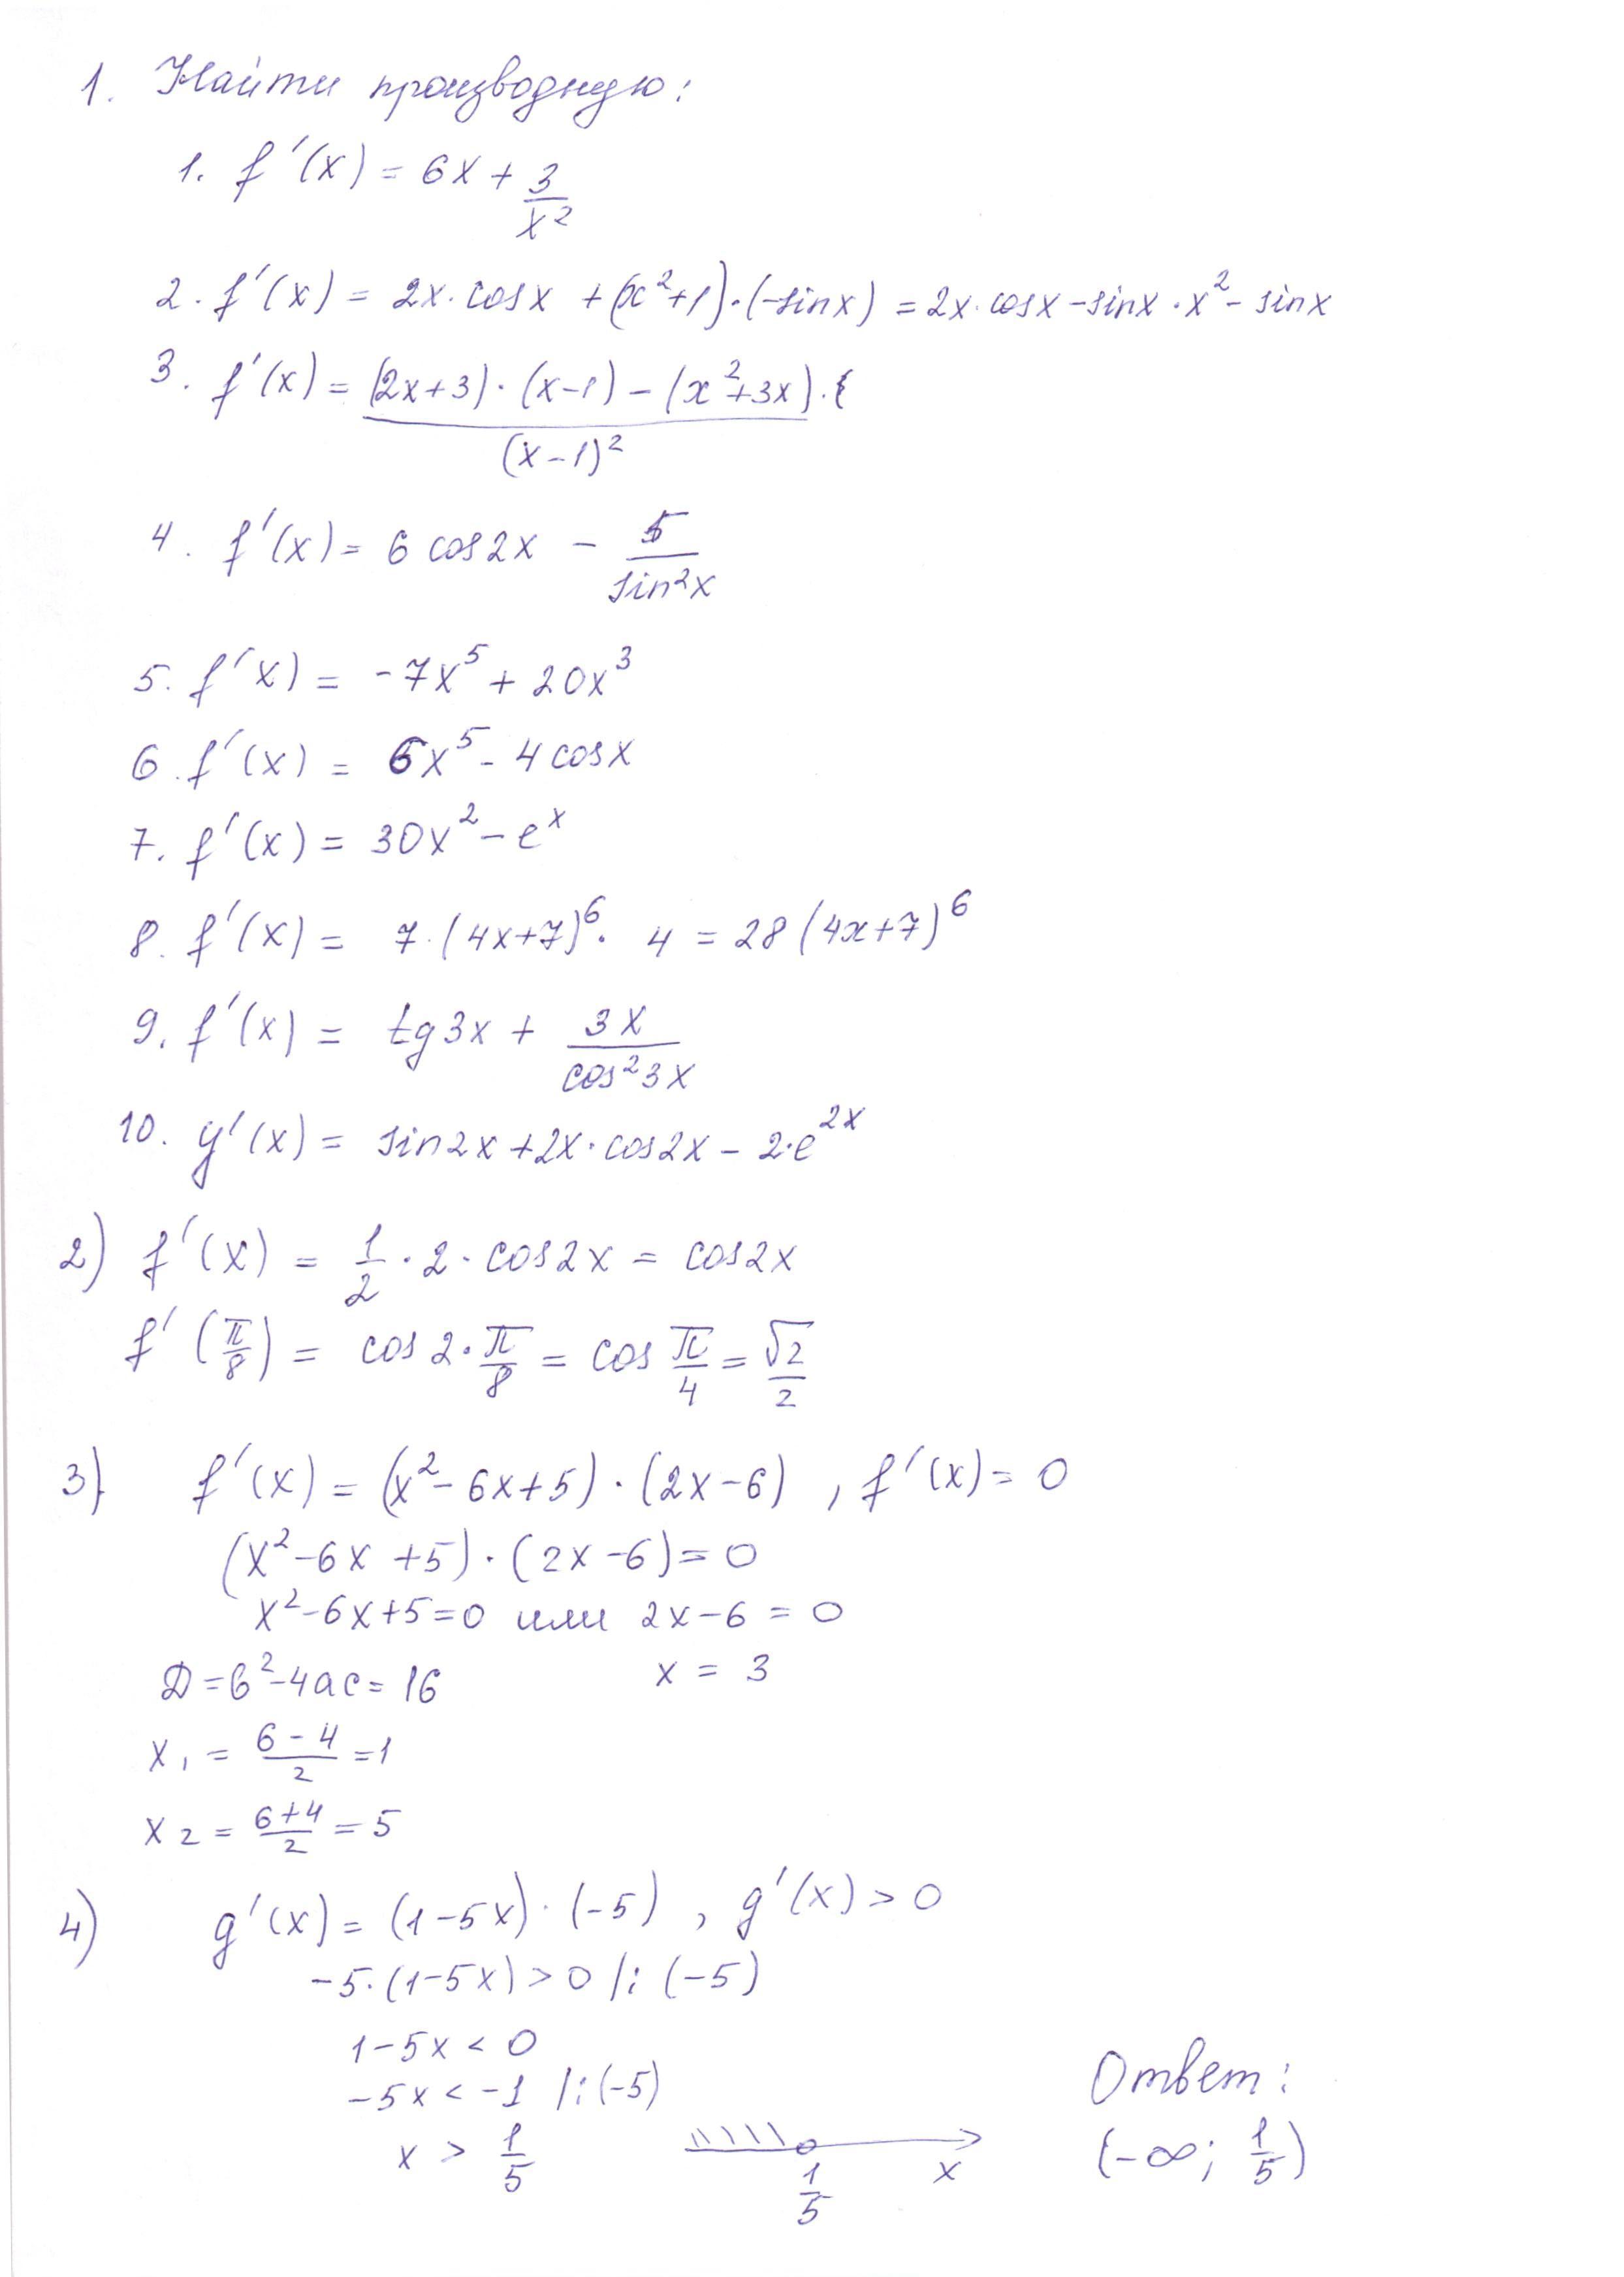 1. Найти производную:
1. f'(x) = 6x + 3/x²
2. f'(x) = 2x·cosx + (x²+1)·(-sinx) = 2x·cosx - sinx·x² - sinx
3. f'(x) = (2x+3)·(x-1) - (x²+3x)·
(x-1)²
4. f'(x) = 6 cos2x - 5/sin²x
5. f'x) = -7x⁵ + 20x³
6. f'(x) = 6x⁵ - 4cosx
7. f'(x) = 30x² - eˣ
8. f'(x) = 7·(4x+7)⁶· 4 = 28(4x+7)⁶
9. f'(x) = tg3x + 3x/cos²3x
10. y'(x) = sin2x + 2x·cos2x - 2·e²ˣ
2) f'(x) = 1/2·2·cos2x = cos2x
f'(π/8) = cos2·π/8 = cos π/4 = √2/2
3) f'(x) = (x²-6x+5)·(2x-6), f'(x) = 0
(x²-6x+5)·(2x-6) = 0
x²-6x+5=0 или 2x-6 = 0
Д=b²-4ac=16 x = 3
x₁ = 6-4/2 = 1
x₂ = 6+4/2 = 5
4) g'(x) = (1-5x)·(-5), g'(x) > 0
-5·(1-5x) > 0 /:(-5)
1-5x < 0
-5x < -1 /:(-5)
x > 1/5
1/5 x
Ответ:
(-∞; 1/5)